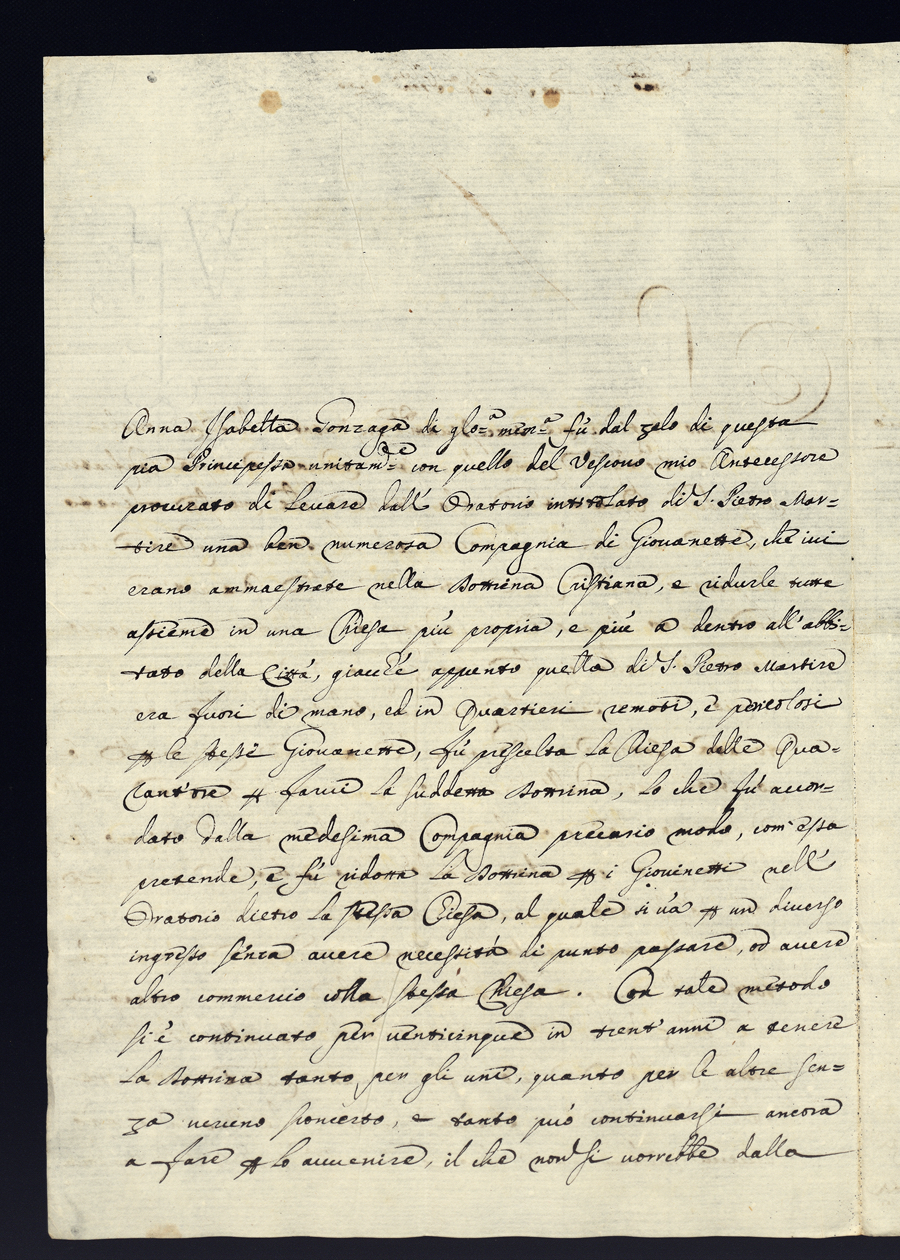 Anna Isabella Gonzaga di glo:ᵃ mem:ᵃ fù dal zelo di questa
pia Principessa unitam:ᵗᵉ con quello del Vescouo mio Antecessore
procurato di leuare dall' Oratorio intitolato di S. Pietro Mar=
tire una ben numerosa Compagnia di Giouanette, che iui
erano ammaestrate nella Dottrina Cristiana, e ridurle tutte
assieme in una Chiesa più propria, e più a dentro all'abbi=
tato della Città, giacchè appunto quella di S. Pietro Martire
era fuori di mano, ed in Quartieri remoti, e pericolosi
ꝑ le stesse Giouanette, fù prescelta la Chiesa delle Qua=
rant'ore ꝑ farui la suddetta Dottrina, lo che fù accor=
dato dalla medesima Compagnia precario modo, com'essa
pretende, e fù ridotta la Dottrina ꝑ i Giouinetti nell'
Oratorio dietro la stessa Chiesa, al quale si uà ꝑ un diuerso
ingresso senza auere necessità di punto passare, od auere
altro commercio colla stessa Chiesa. Con tale metodo
si è continuato per uenticinque in trent'anni a tenere
la Dottrina tanto per gli uni, quanto per le altre sen=
za ueruno sconcerto, e tanto può continuarsi ancora
a fare ꝑ lo auuenire, il che non si uorrebbe dalla